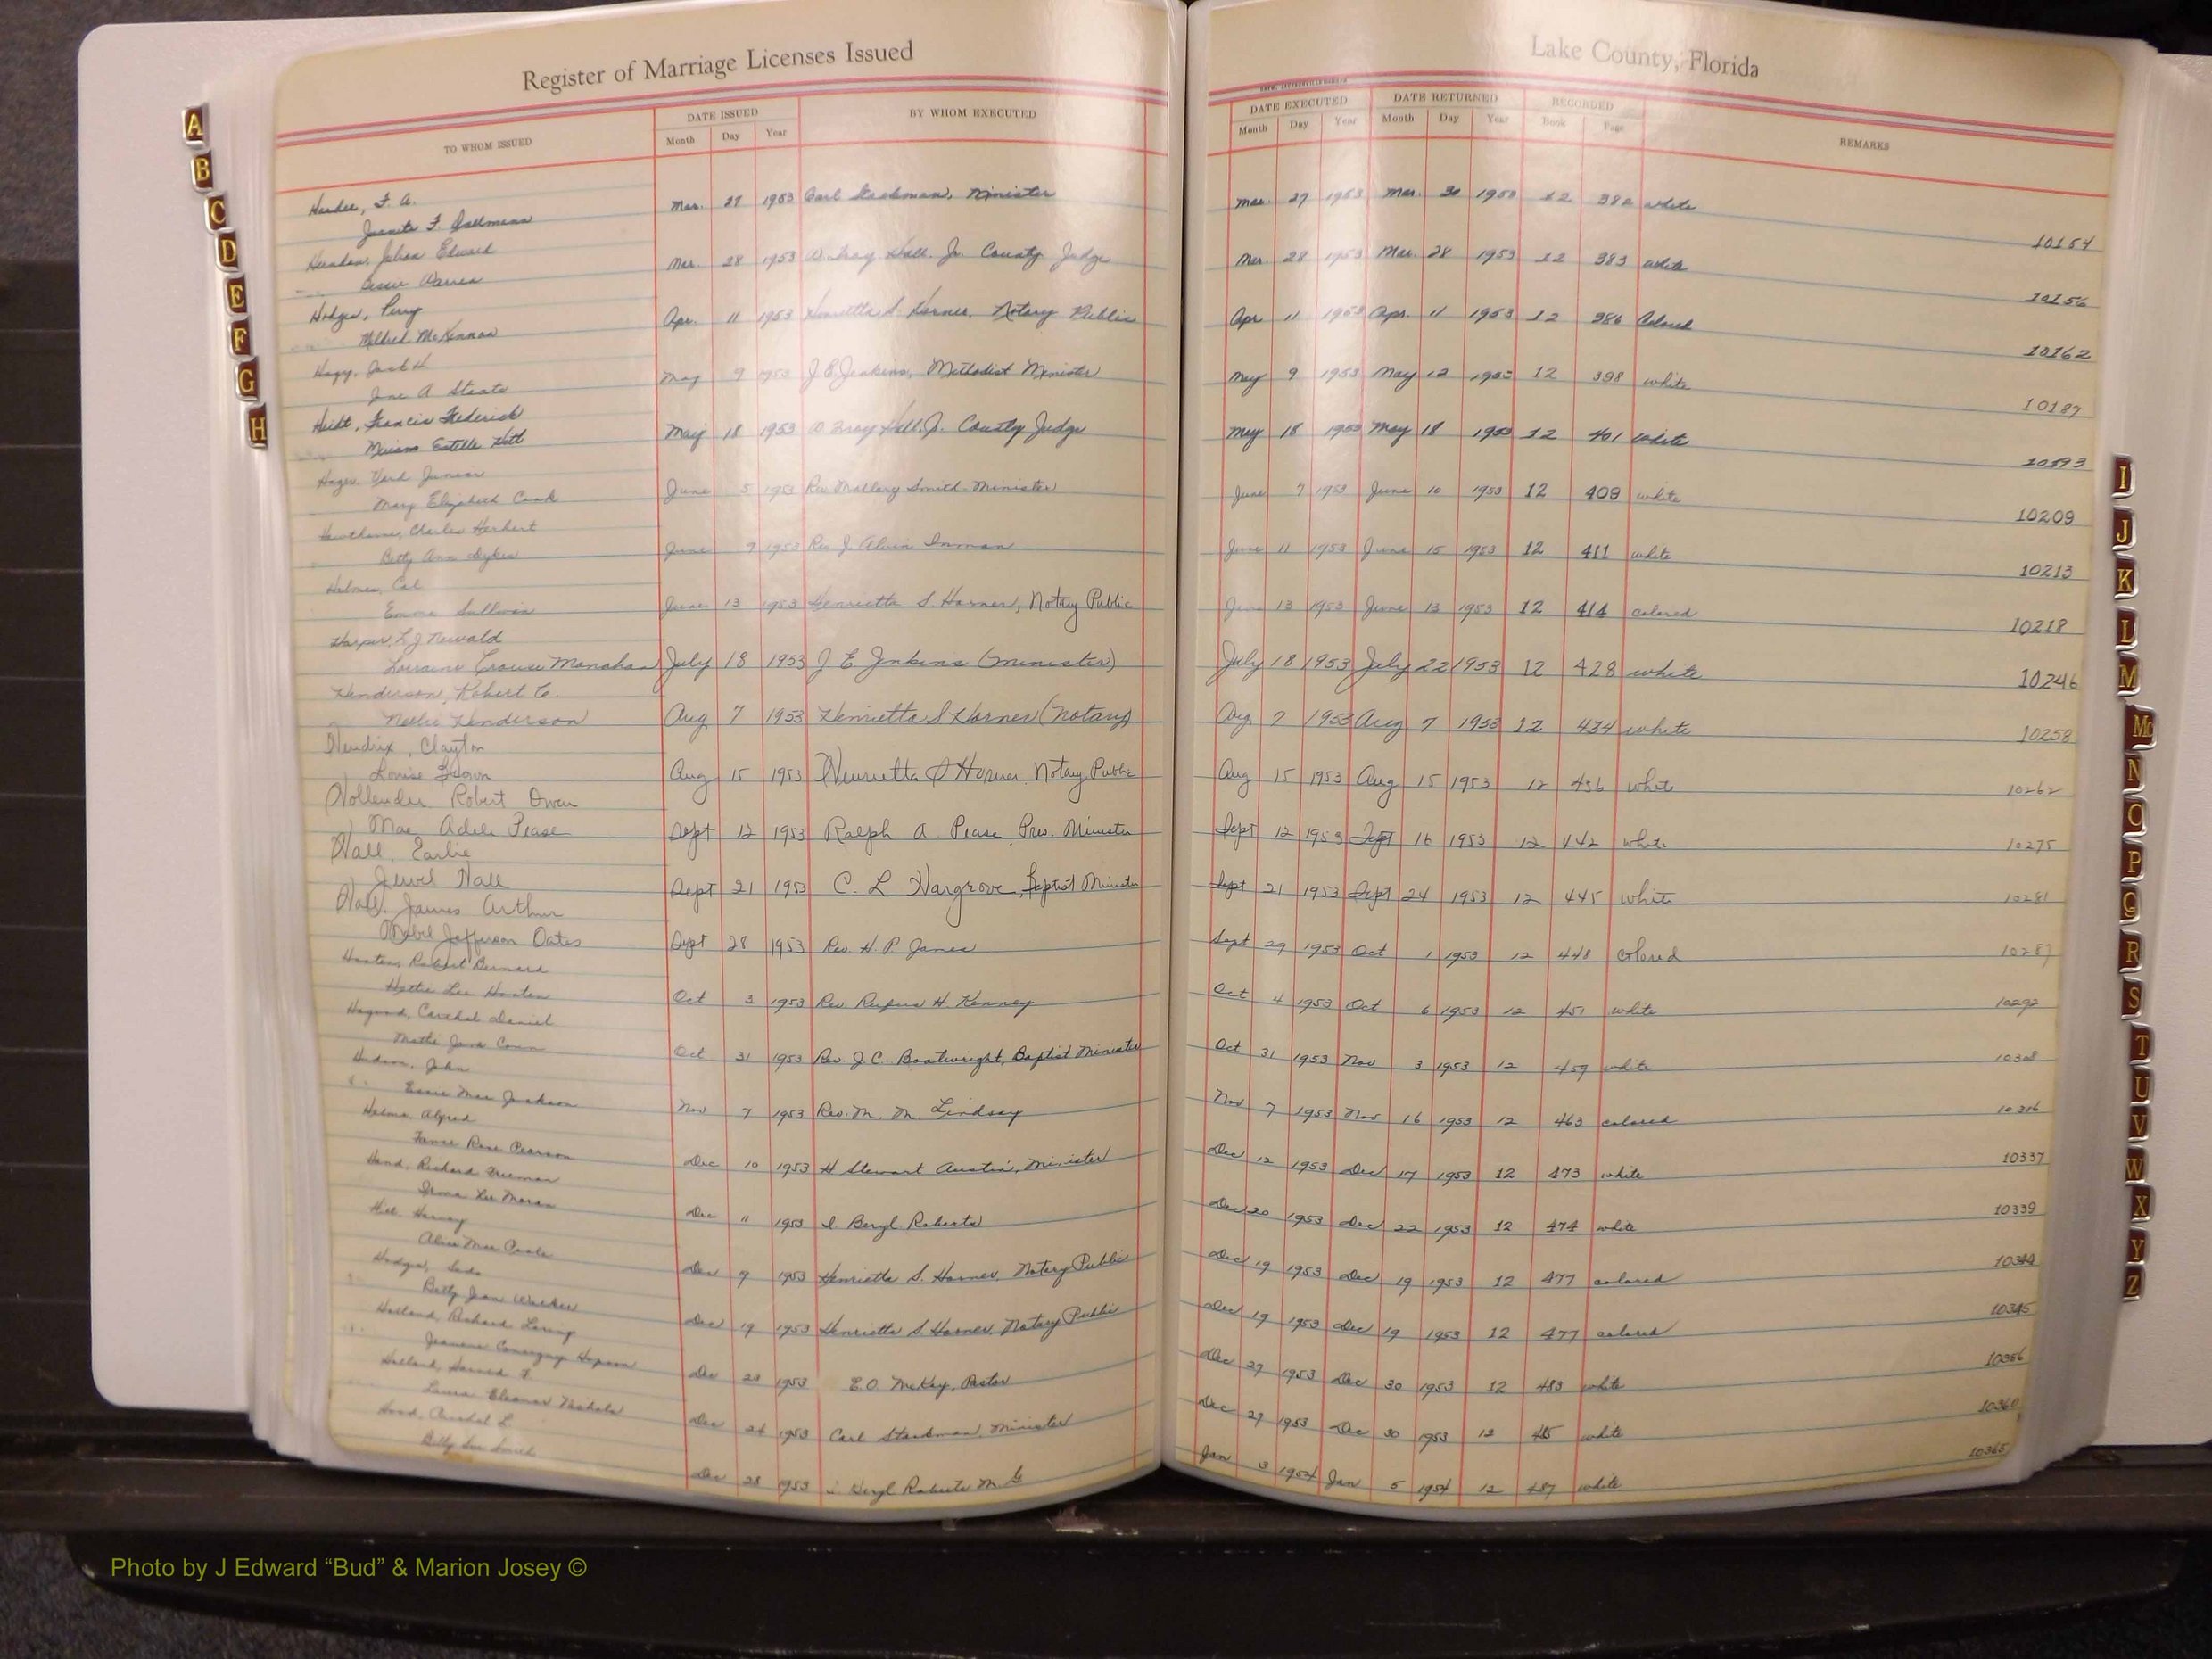 Register of Marriage Licenses Issued
Lake County, Florida
TO WHOM ISSUED
DATE ISSUED
Month Day Year
BY WHOM EXECUTED
DATE EXECUTED
Month Day Year
DATE RETURNED
Month Day Year
RECORDED
Book Page
REMARKS
F. A. Mar. 27 1953 Carl Minister Mar. 27 1953 Mar. 30 1953 12 382 white
Juanita F. 10154
Herndon, Julian Edward Mar. 28 1953 Hall. Jr. County Judge Mar. 28 1953 Mar. 28 1953 12 383 white
10156
Hodges, Perry Apr. 11 1953 Henrietta S. Horner, Notary Public Apr 11 1953 Apr. 11 1953 12 386 Colored
Mildred McKinnon 10162
Hagy, Jack H. May 9 1953 J E Jenkins, Methodist Minister May 9 1953 May 12 1953 12 398 white
A Staats 10187
Heidt, Francis Frederick May 18 1953 Hall. Jr. County Judge May 18 1953 May 18 1953 12 401 white
Miriam Estelle
Junior June 5 1953 Rev Mallory Smith Minister June 7 1953 June 10 1953 12 409 white
Mary Elizabeth Cook 10209
Hawthorne, Charles Herbert June 9 1953 Rev J. Alvin Inman June 11 1953 June 15 1953 12 411 white
Betty Ann Dykes 10213
Holmes, Cal June 13 1953 Henrietta S Horner, Notary Public June 13 1953 June 13 1953 12 414 colored
Emma Sullivan 10218
Harper, L J Newald July 18 1953 J E Jenkins (minister) July 18 1953 July 22 1953 12 428 white
Lorraine Crouse Monahan 10246
Henderson, Robert C. Aug 7 1953 Henrietta S Horner (Notary) Aug 7 1953 Aug 7 1953 12 434 white
Nellie Henderson 10258
Hendrix, Clayton Aug 15 1953 Henrietta S Horner Notary Public Aug 15 1953 Aug 15 1953 12 436 white
Louise 10262
Hollender Robert Owen Sept 12 1953 Ralph A. Pease, Pres. Minister Sept 12 1953 Sept 16 1953 12 442 white
Mae Adele Pease 10275
Hall, Earlie Sept 21 1953 C. L Hargrove, Baptist Minister Sept 21 1953 Sept 24 1953 12 445 white
Jewel Hall 10281
Hall, James Arthur Sept 28 1953 Rev H. P. James Sept 29 1953 Oct 1 1953 12 448 colored
Mabel Jefferson Oates 10287
Robert Bernard Oct 3 1953 Rev Rufus H. Kenney Oct 4 1953 Oct 6 1953 12 451 white
Hattie Lee 10292
Daniel Oct 31 1953 Rev J. C. Boatwright, Baptist Minister Oct 31 1953 Nov 3 1953 12 459 white
Jane 10308
Hudson, John Nov 7 1953 Rev. M. M. Lindsay Nov 7 1953 Nov 16 1953 12 463 colored
Essie Mae Jackson 10316
Alfred Dec 10 1953 H Stewart Austin, Minister Dec 12 1953 Dec 17 1953 12 473 white
Rose Pearson 10337
Hand, Richard Freeman Dec 11 1953 I Beryl Roberts Dec 20 1953 Dec 22 1953 12 474 white
Irma Lee Moran 10339
Hill, Harvey Dec 9 1953 Henrietta S. Horner, Notary Public Dec 19 1953 Dec 19 1953 12 477 colored
Alice Mae Poole 10344
Hodges, Dec 19 1953 Henrietta S Horner, Notary Public Dec 19 1953 Dec 19 1953 12 477 colored
Betty Jean Walker 10345
Holland, Richard Loring Dec 1953 E.O. McKay, Pastor Dec 27 1953 Dec 30 1953 12 483 white
10356
Holland, F Dec 24 1953 Carl Minister Dec 27 1953 Dec 30 1953 12 485 white
Laura Eleanor Nichols 10360
L. Dec 28 1953 Beryl Roberts M G Jan 3 1954 Jan 5 1954 12 487 white
Betty Sue Smith 10365
A
B
C
D
E
F
G
H
I
J
K
L
M
Mc
N
O
P
Q
R
S
T
U
V
W
X
Y
Z
Photo by J Edward “Bud” & Marion Josey ©